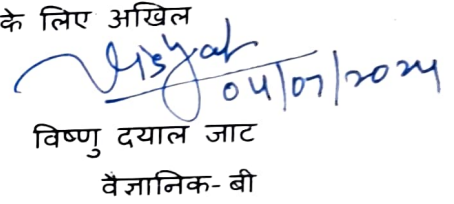 के लिए अखिल
04/07/2024
विष्णु दयाल जाट
वैज्ञानिक- बी